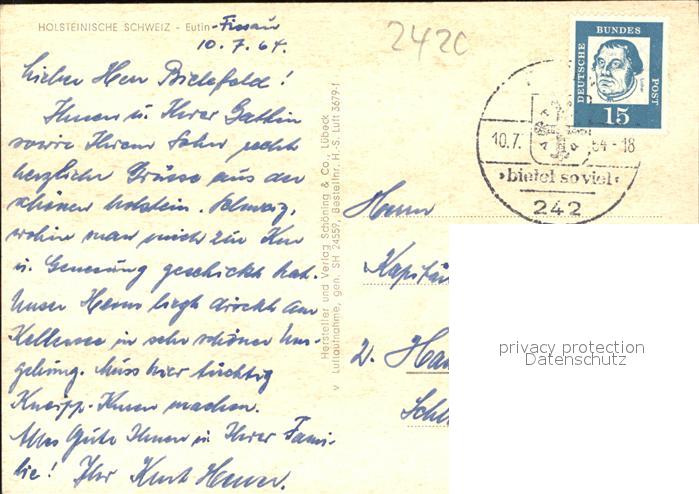 HOLSTEINISCHE SCHWEIZ - Eutin-Fissau
10. 7. 64.
2420
Lieber Herr Bielefeld!
Ihnen u. Ihrer Gattin
sowie Ihrem Sohn recht
herzliche Grüsse aus der
schönen holstein. Schweiz,
wohin man mich zur Kur
u. Genesung geschickt hat.
Unser Heim liegt direckt am
Kellersee in sehr schöner Um-
gebung. Muss hier tüchtig
Kneipp-Kuren machen.
Alles Gute Ihnen u. Ihrer Fami-
lie! Ihr Kurt
Hersteller und Verlag Schöning & Co., Lübeck
v Luftaufnahme, gen. SH 24559, Bestellnr. H.-S. Luft 3679-1
DEUTSCHE
BUNDES
POST
15
10.7. 64-18
bietet so viel
242
Herrn
Kapitän
2. Ham
Schl
privacy protection
Datenschutz